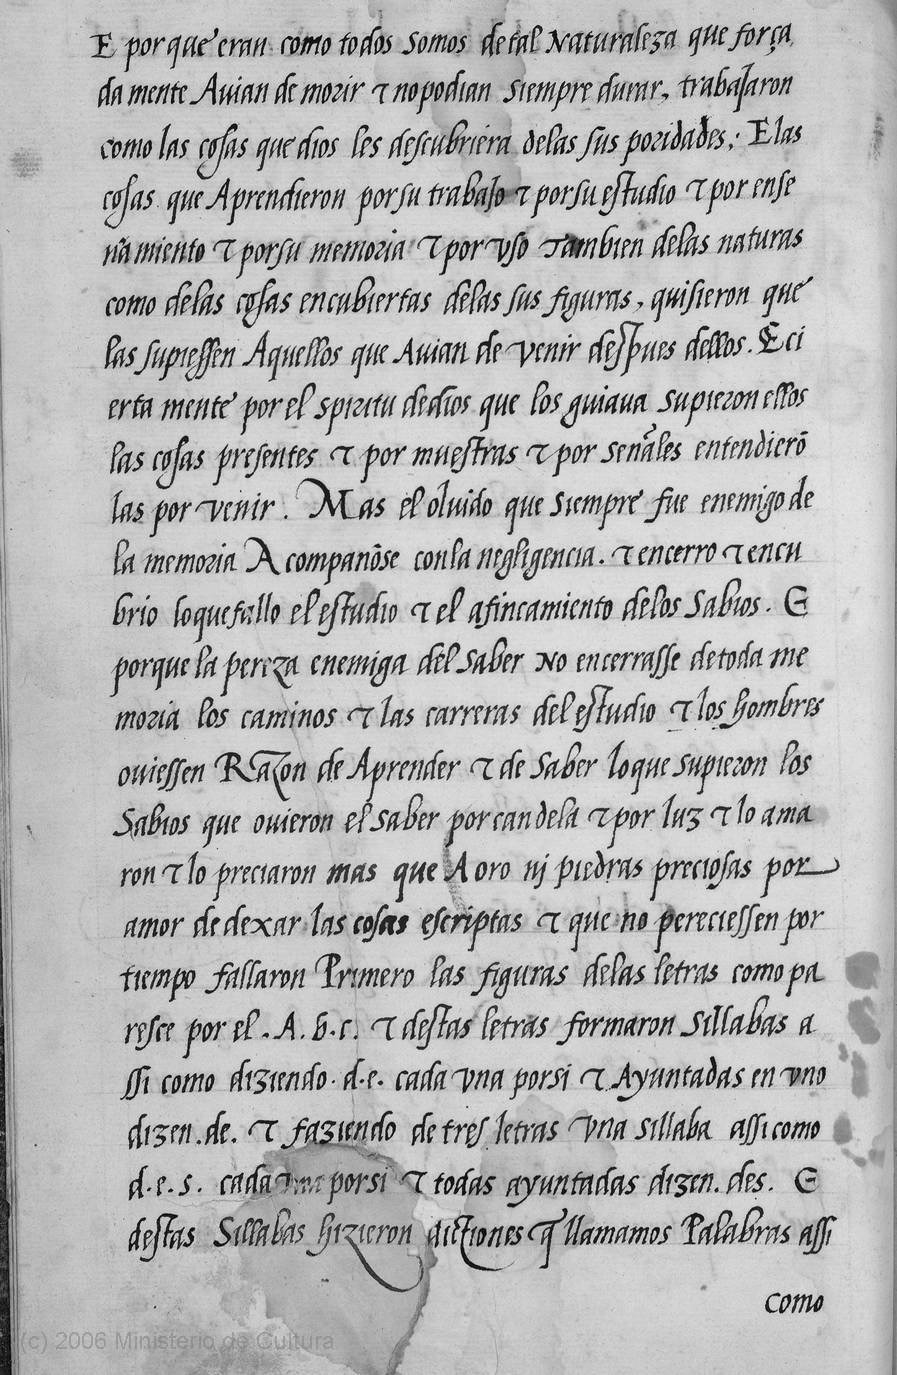 E porque eran como todos somos de tal Naturaleza que força
da mente Auian de morir τ no podian siempre durar, trabajaron
como las cosas que dios les descubriera delas sus poridades; E las
cosas que Aprendieron por su trabajo τ por su estudio τ por ense
ñamiento τ por su memoria τ por vso Tambien delas naturas
como delas cosas encubiertas delas sus figuras, quisieron que
las supiessen Aquellos que Auian de venir despues dellos. E ci
erta mente por el spiritu de dios que los guiaua supieron ellos
las cosas presentes τ por muestras τ por señales entendierō
las por venir. Mas el oluido que siempre fue enemigo de
la memoria Acompañose con la negligencia. τ encerro τ encu
brio lo que fallo el estudio τ el afincamiento delos Sabios. E
porque la pereza enemiga del saber No encerrasse de toda me
moria los caminos τ las carreras del estudio τ los hombres
ouiessen Razon de Aprender τ de saber lo que supieron los
Sabios que ouieron el saber por candela τ por luz τ lo ama
ron τ lo preciaron mas que A oro nj piedras preciosas por
amor de dexar las cosas escriptas τ que no pereciessen por
tiempo fallaron Primero las figuras delas letras como pa
resce por el .A.b.c. τ destas letras formaron sillabas a
ssi como diziendo. d.e. cada vna por si τ Ayuntadas en vno
dizen .de. τ faziendo de tres letras vna sillaba assi como
d.e.s. cada vna por si τ todas ayuntadas dizen. des. E
destas Sillabas hizieron dictiones q̃ llamamos Palabras assi
como
(c) 2006 Ministerio de Cultura